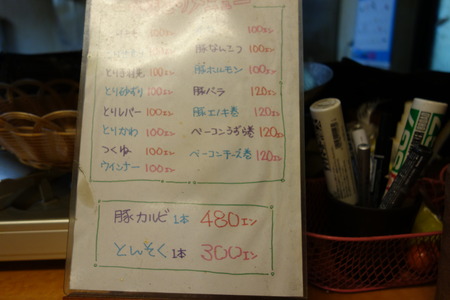 100エン 100エン
100エン 豚なんこつ 100エン
100エン 豚ホルモン 100エン
とり砂ずり 100エン 豚バラ 120エン
とりレバー 100エン 豚エノキ巻 120エン
とりかわ 100エン ベーコンうずら巻 120エン
つくね 100エン ベーコンチーズ巻 120エン
ウインナー 100エン
豚カルビ 1本 480エン
とんそく 1本 300エン